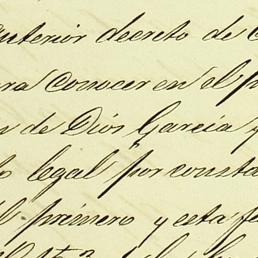 anterior decreto de
ra conocer en el p
n de Dios Garcia y
lo legal por consta
el primero y esta fe